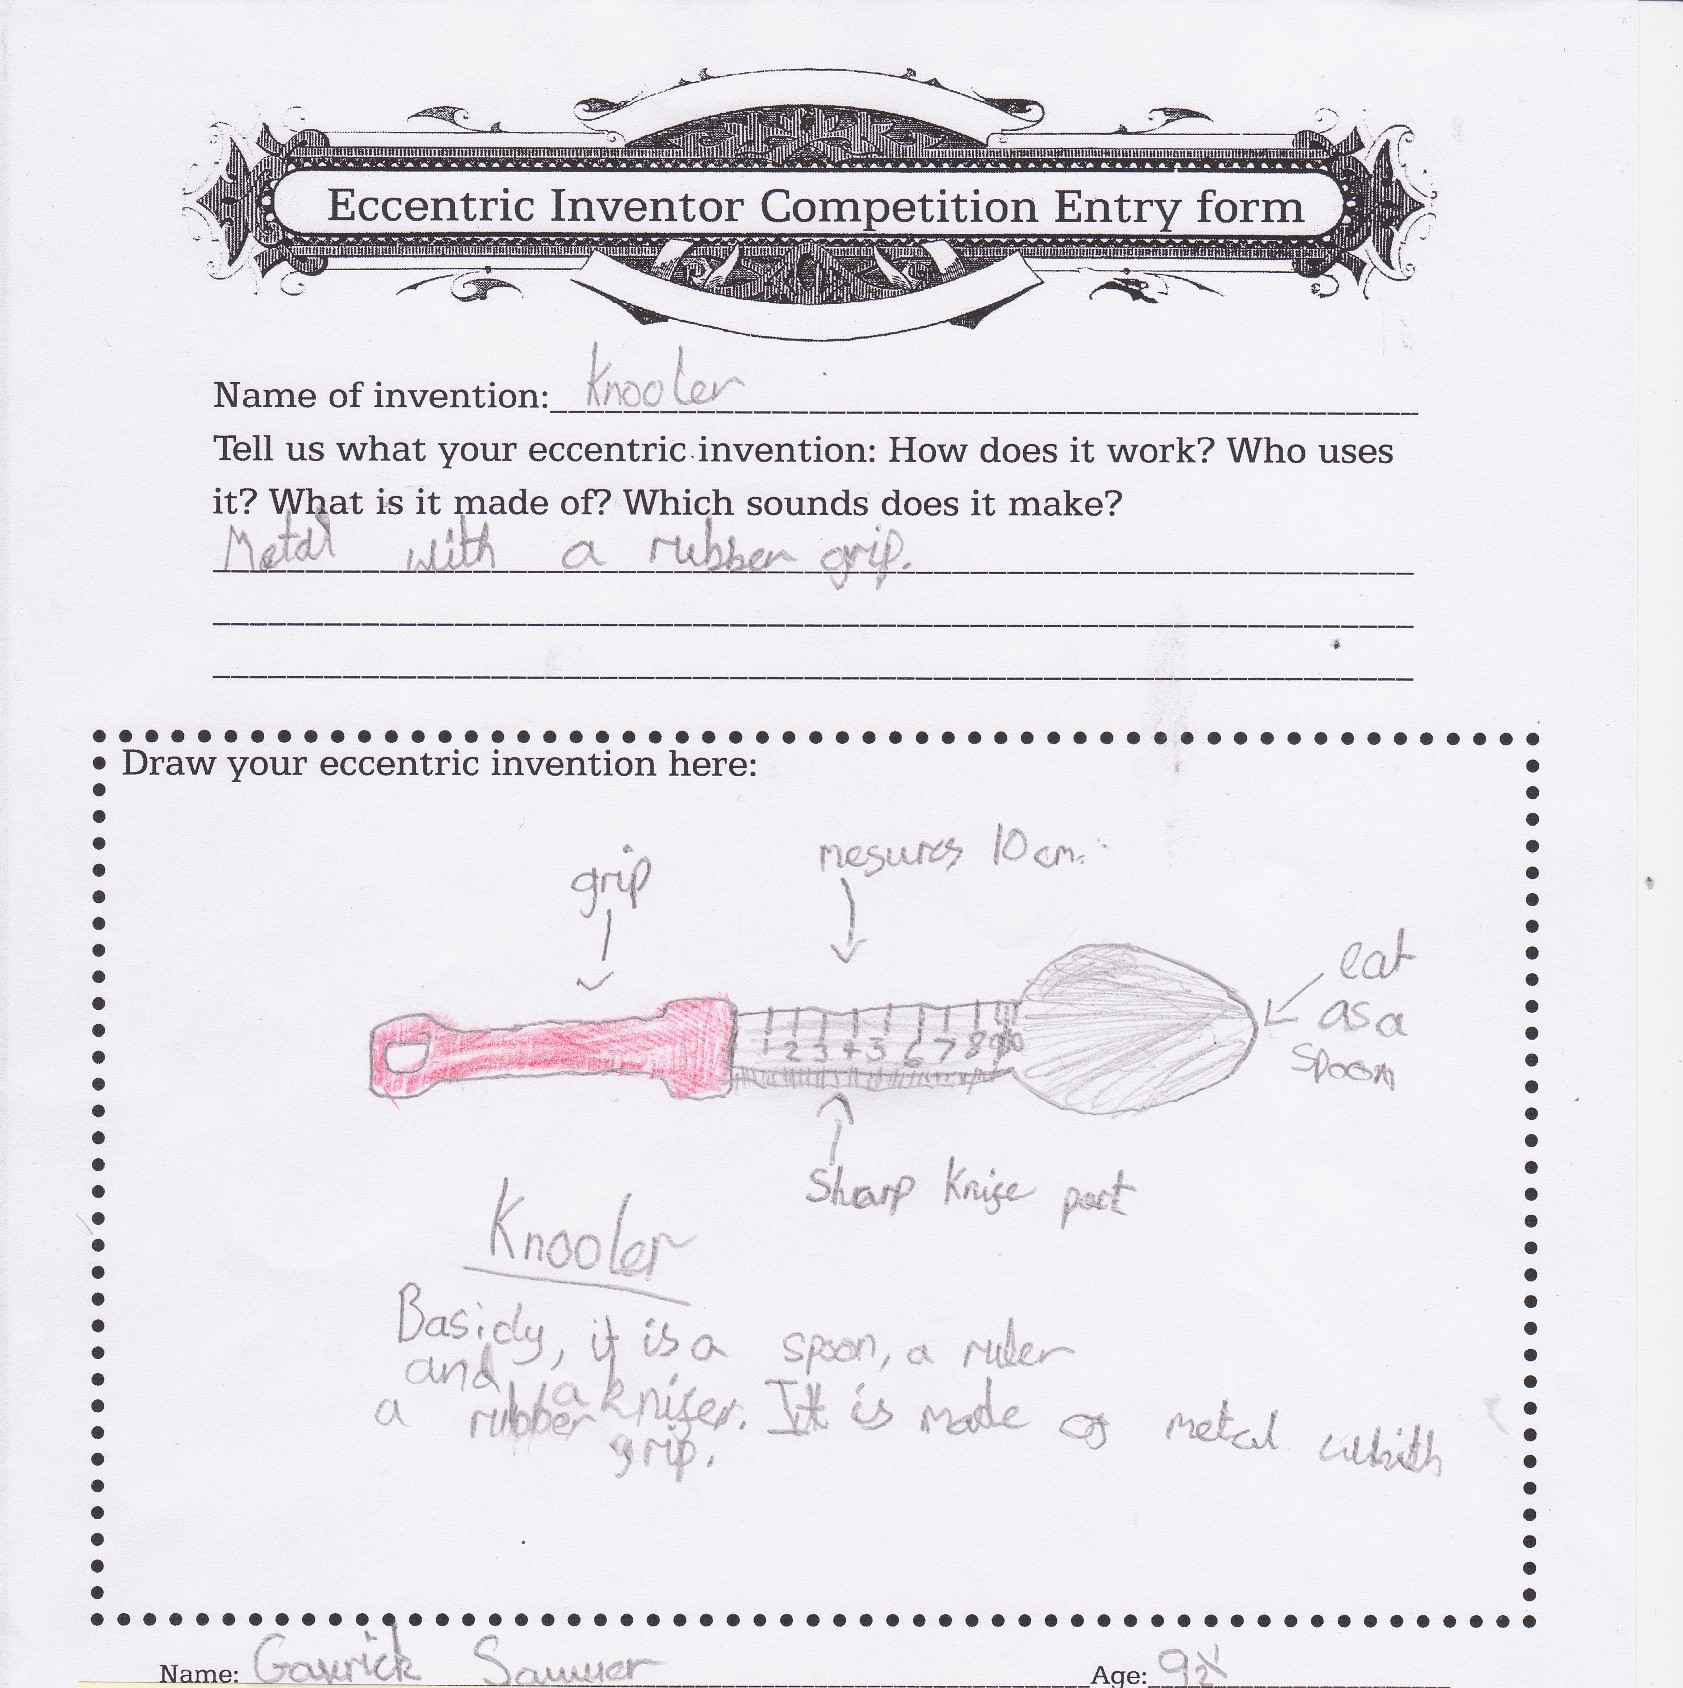 Eccentric Inventor Competition Entry form
Name of invention: Knooler
Tell us what your eccentric invention: How does it work? Who uses
it? What is it made of? Which sounds does it make?
Metal with a rubber grip.
Draw your eccentric invention here:
grip
mesures 10cm.
eat
as a
spoon
1 2 3 4 5 6 7 8 9 10
Sharp knife part
Knooler
Basicly, it is a spoon, a ruler
and a knifer. It is made of metal with
a rubber
grip.
Name:
Age: 9½